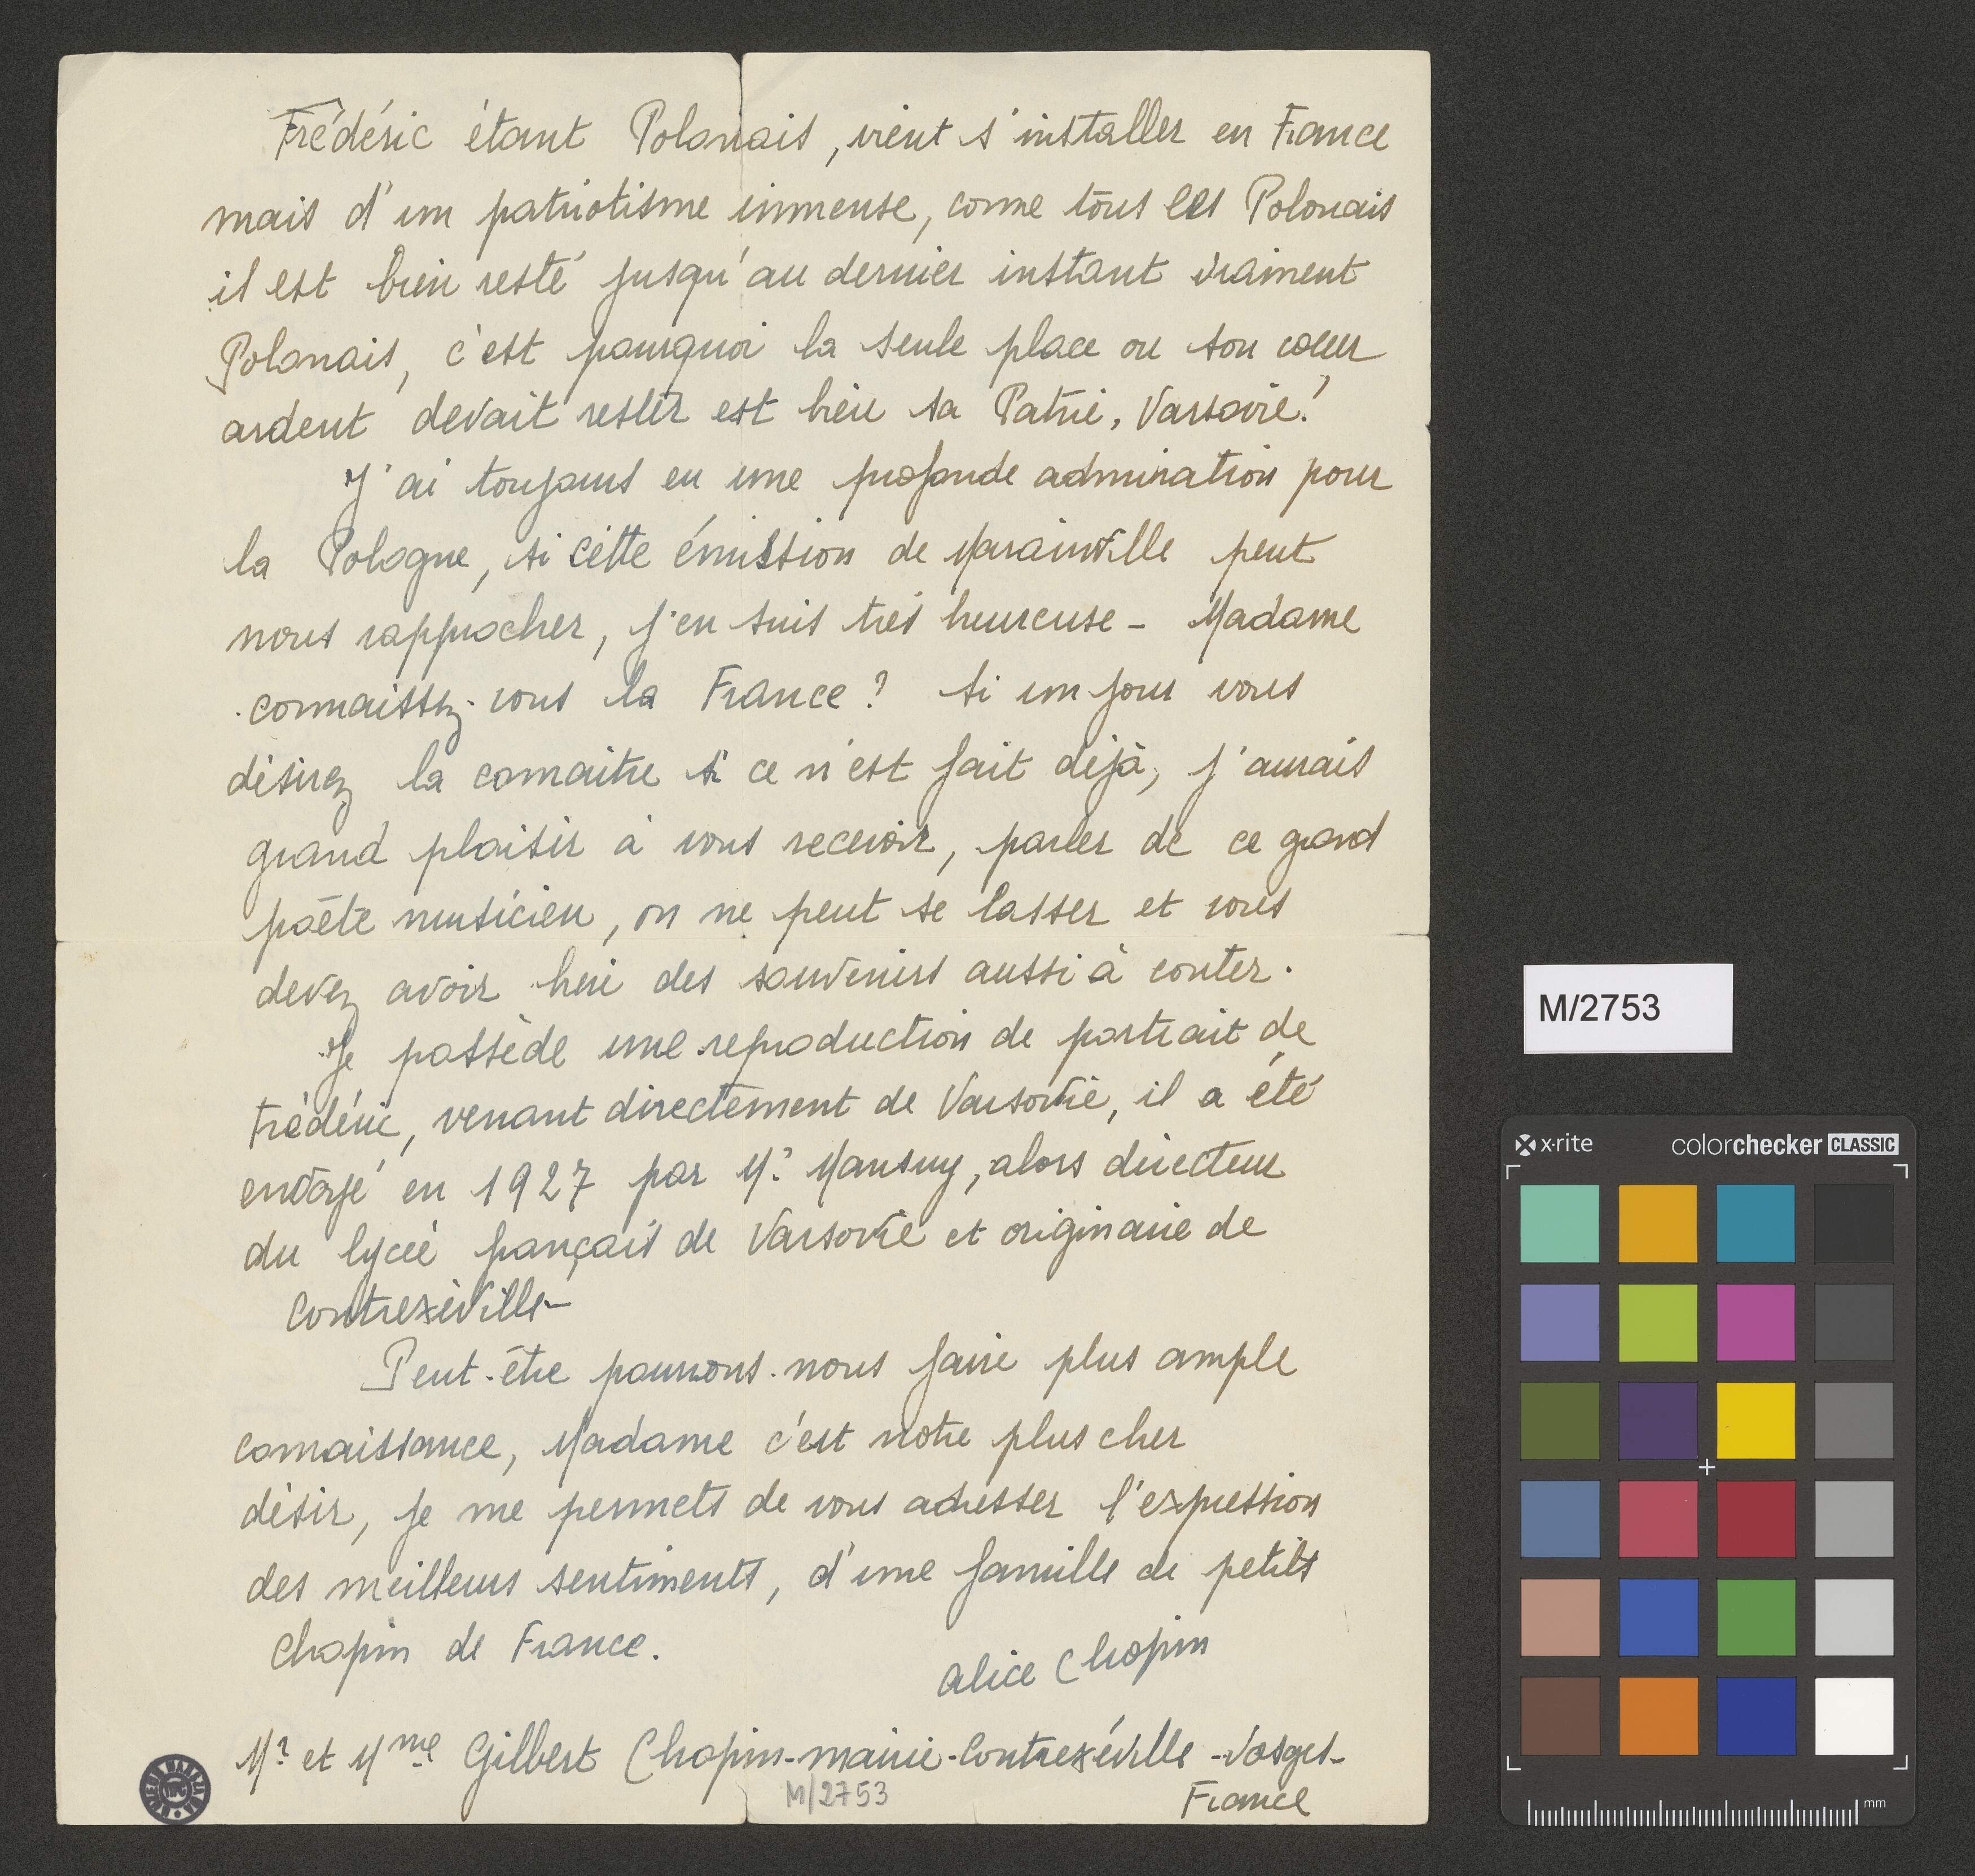 Frédéric étant Polonais, vient s'installer en France
mais d'un patriotisme immense, comme tous les Polonais
il est bien resté jusqu'au dernier instant vraiment
Polonais, c'est pourquoi la seule place ou son cœur
ardent devait rester est bien sa Patrie, Varsovie!
J'ai toujours eu une profonde admiration pour
la Pologne, si cette émission de Marainville peut
nous rapprocher, j'en suis très heureuse - Madame
connaissez-vous la France? Si un jour vous
désirez la connaitre si ce n'est fait déjà, j'aurais
grand plaisir à vous recevoir, parler de ce grand
poête musicien, on ne peut se lasser et vous
devez avoir bien des souvenirs aussi à conter.
Je possède une reproduction de portrait de
Frédéric, venant directement de Varsovie, il a été
envoyé en 1927 par Mr Mansuy, alors directeur
du lycée français de Varsovie et originaire de
Contrexéville-
Peut-être pourrons-nous faire plus ample
connaissance, Madame c'est notre plus cher
désir, je me permets de vous adresser l'expression
des meilleurs sentiments, d'une famille de petits
Chopin de France.
Alice Chopin
Mr et Mme Gilbert Chopin-mairie-Contrexéville-Vosges-
France
M/2753
M/2753
x-rite
colorchecker CLASSIC
mm